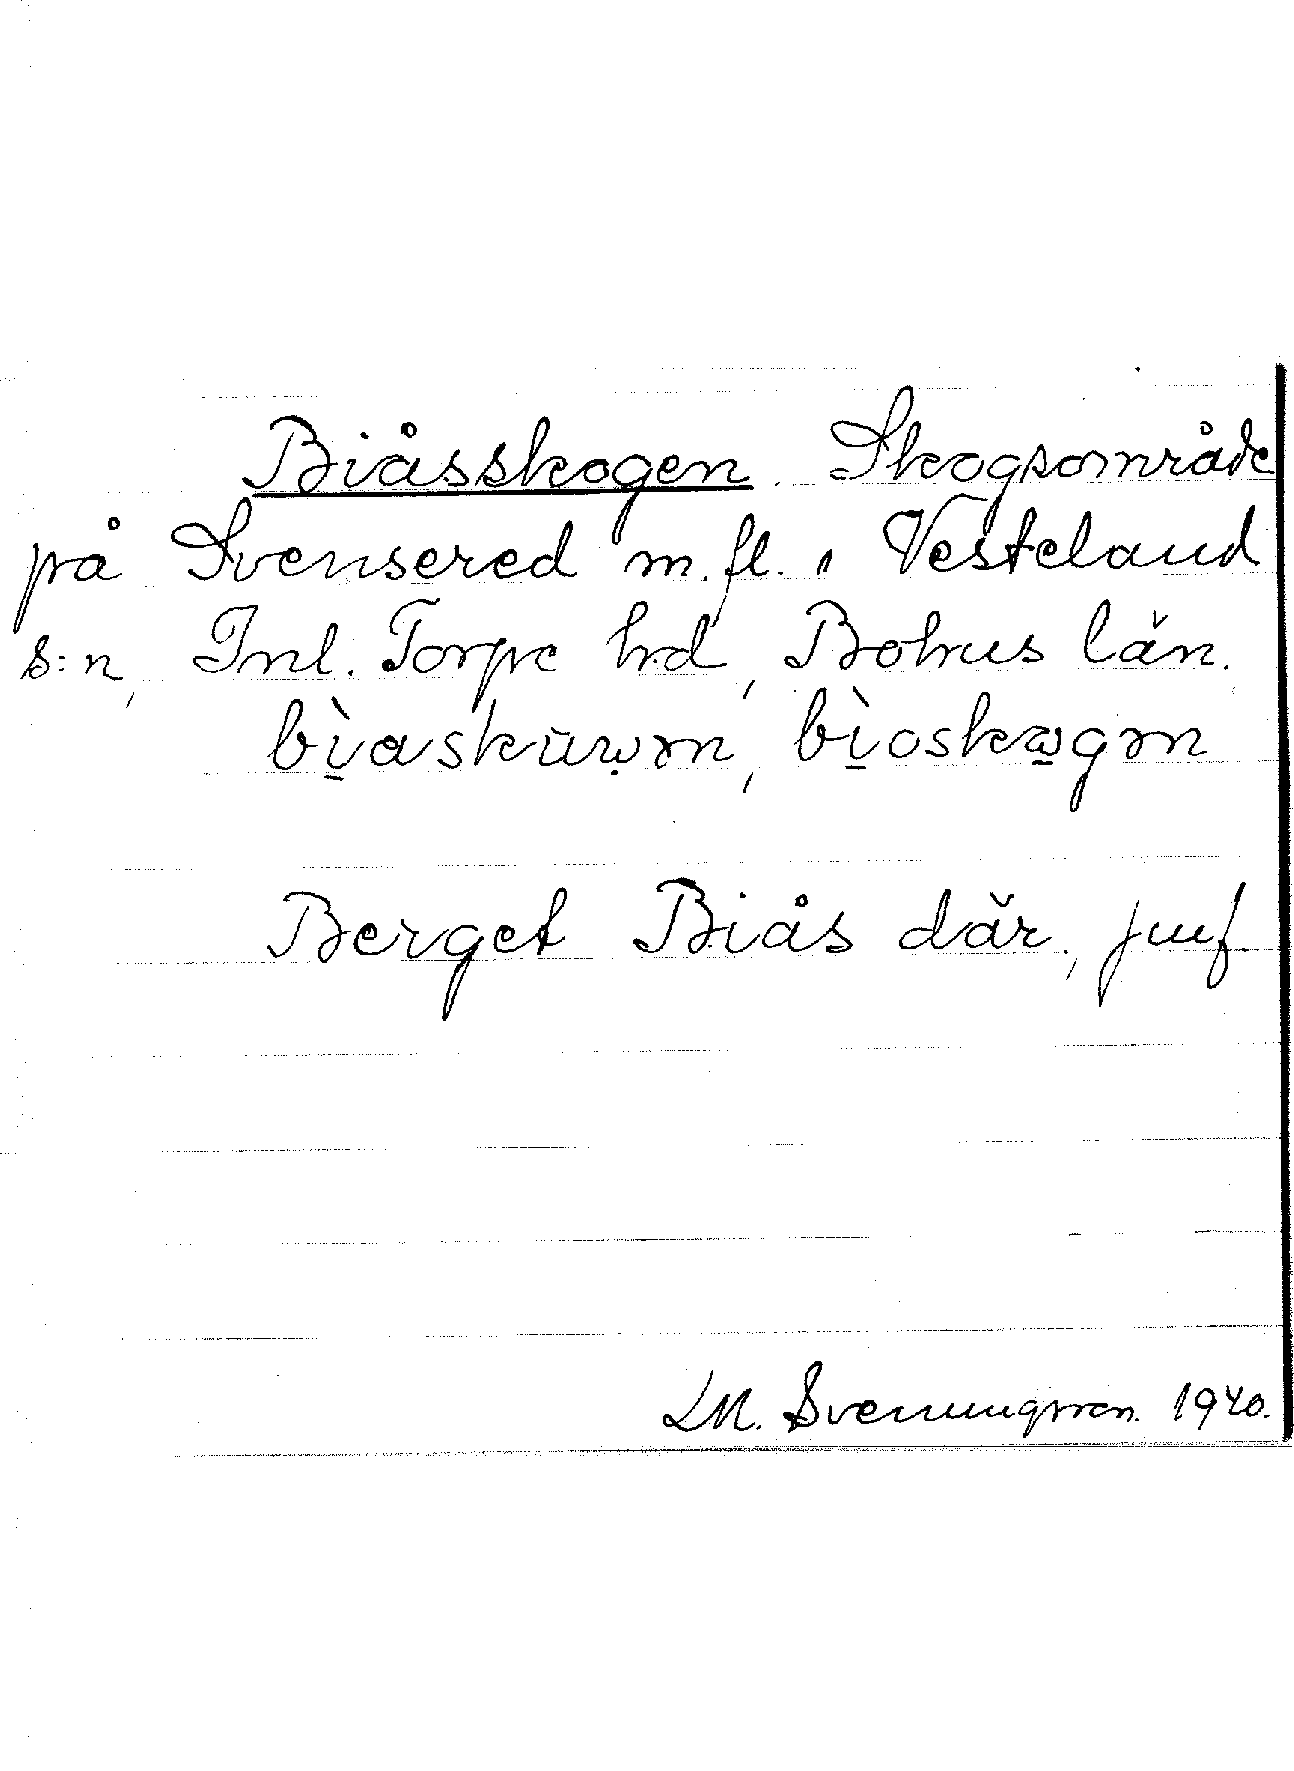 Biåsskogen. Skogsområde
på Svensered m.fl. i Vesteland
s:n, Inl. Torpe hd, Bohus län.
bìaskūwən, bìoskωgən
Berget Biås där, jmf.
LM. Svenungsson. 1940.